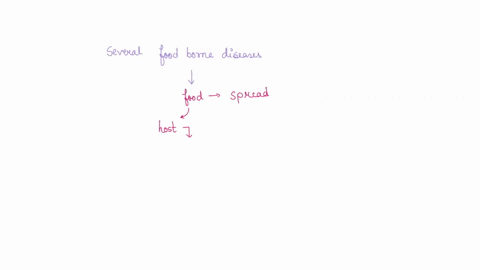 Several food borne diseases
food → spread
host